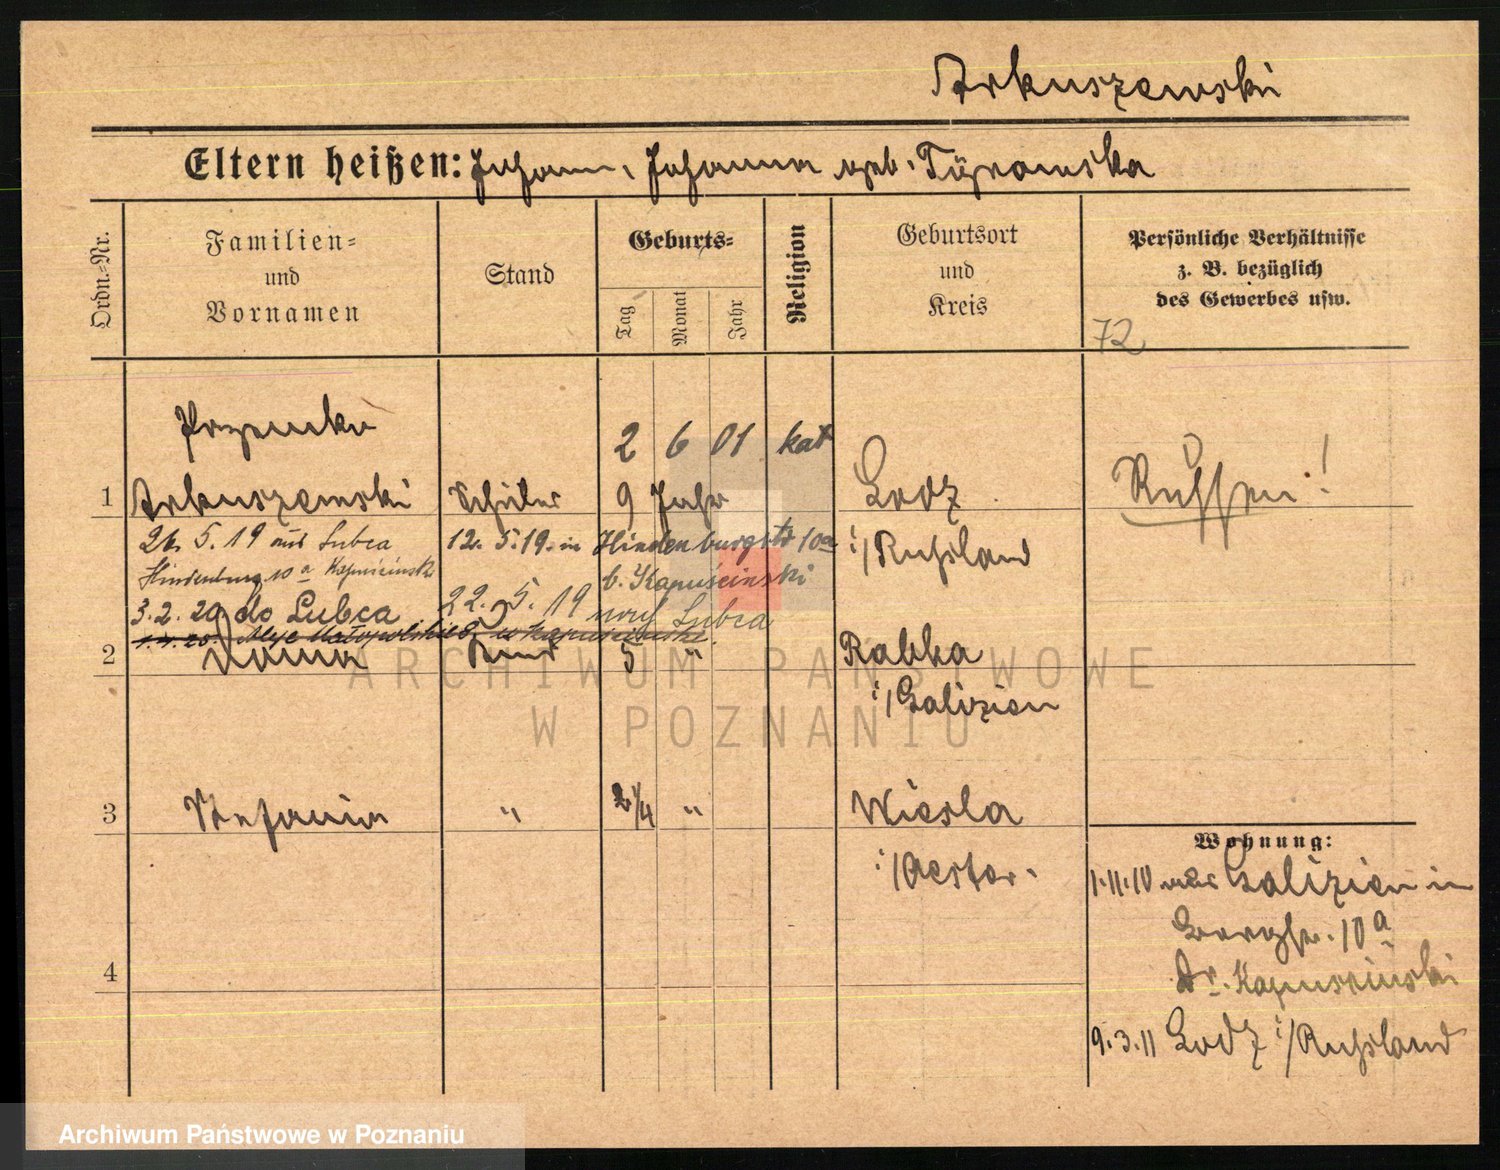 Arkuszewski
Eltern heißen: Johann, Johanna geb.
Ordn.-Nr.
Familien-
und
Vornamen
Stand
Geburts-
Tag
Monat
Jahr
Religion
Geburtsort
und
Kreis
Persönliche Verhältnisse
z. B. bezüglich
des Gewerbes usw.
72
2 6 01 kat
1 Arkuszewski Schüler 9 Jahr Lodz Russen!
26. 5. 19 aus Lubca 12. 5. 19. in Hindenburgstr 10a i/Russland
Hindenburg 10a Kapuścinski b. Kapuścinski
3. 2. 20 do Lubca 22. 5. 19 nach Lubca
1. 4. 20. Aleje Małopolskie
2 Kind 5 " Rabka
i/Galizien
3 Stefania " 2¼ " Wiesla
i/Oestor.
4
Wohnung:
1.11.10 aus Galizien in
10a
Dr. Kapuscinski
9.3.11 Lodz i/Russland
ARCHIWUM PAŃSTWOWE
W POZNANIU
Archiwum Państwowe w Poznaniu